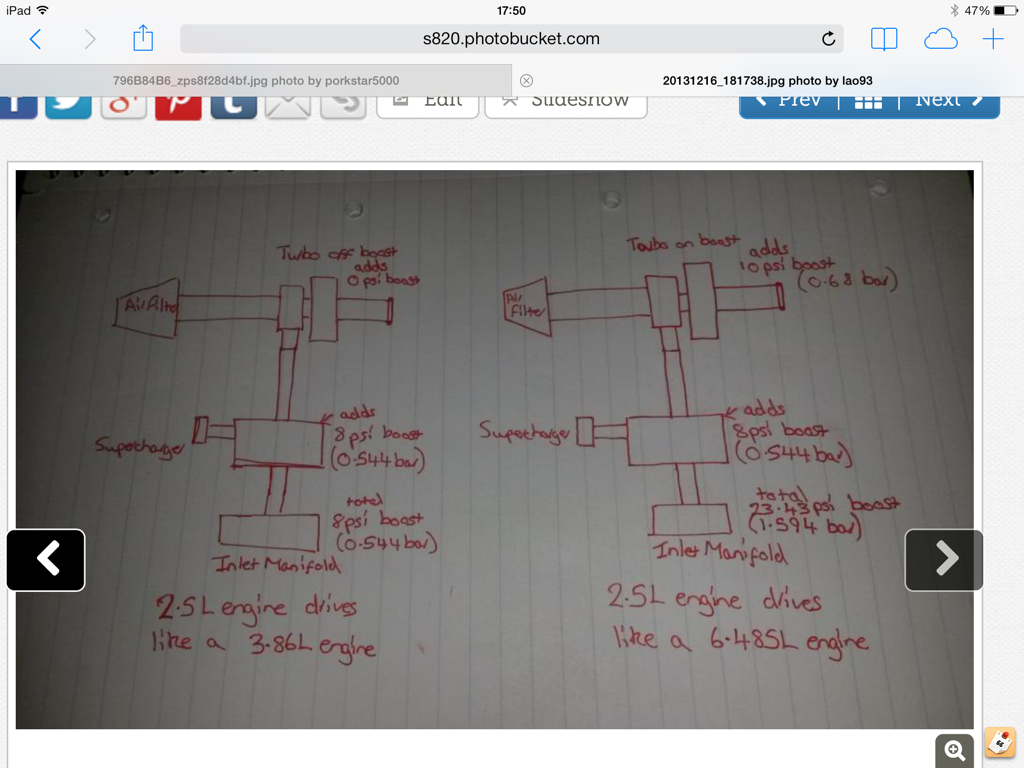 iPad
17:50
47%
s820.photobucket.com
796B84B6_zps8f28d4bf.jpg photo by porkstar5000
20131216_181738.jpg photo by lao93
Edit
Slideshow
Prev
Next
Turbo off boost
adds
0 psi boost
Air Filter
Supercharger
adds
8 psi boost
(0.544 bar)
total
8 psi boost
(0.544 bar)
Inlet Manifold
2.5L engine drives
like a 3.86L engine
Turbo on boost
adds
10 psi boost
(0.68 bar)
Air
Filter
Supercharger
adds
8 psi boost
(0.544 bar)
total
23.43 psi boost
(1.594 bar)
Inlet Manifold
2.5L engine drives
like a 6.485L engine